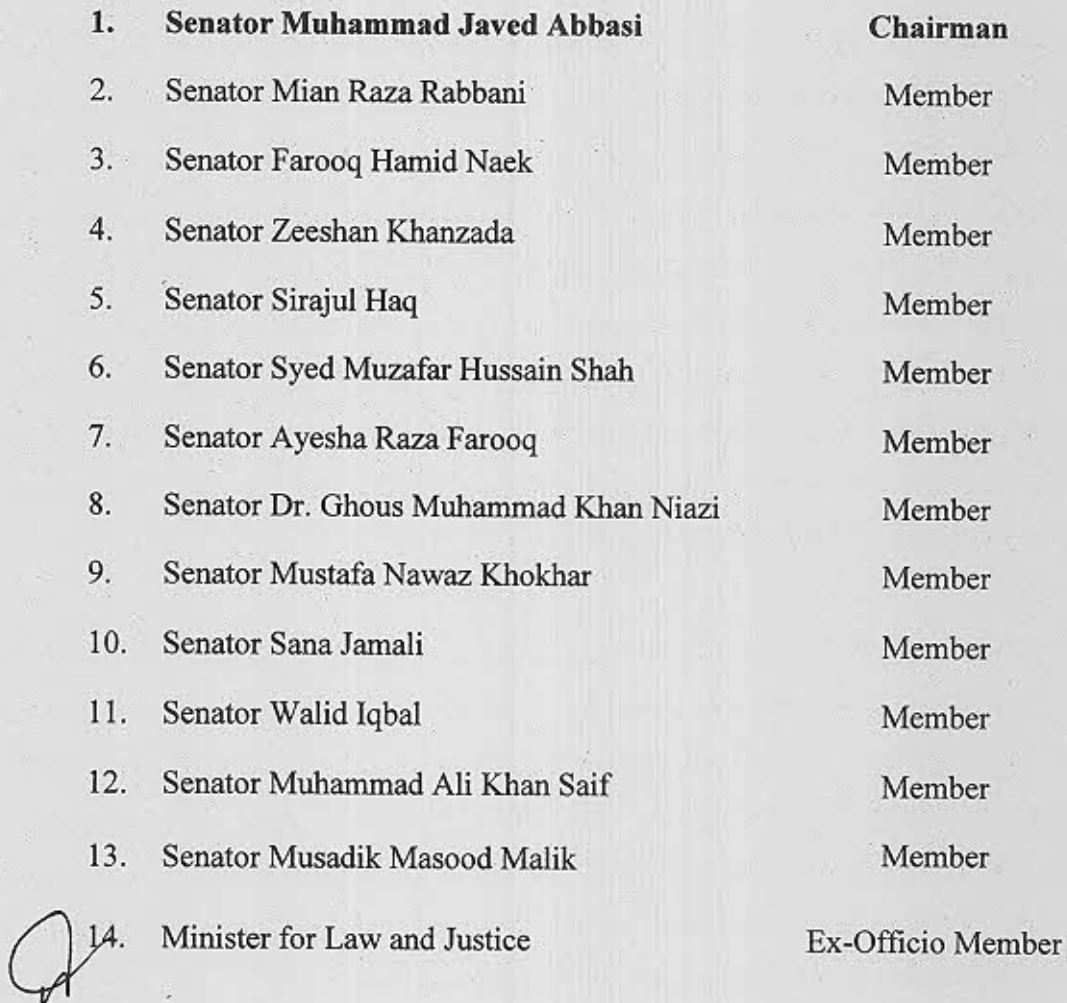 1. Senator Muhammad Javed Abbasi Chairman
2. Senator Mian Raza Rabbani Member
3. Senator Farooq Hamid Naek Member
4. Senator Zeeshan Khanzada Member
5. Senator Sirajul Haq Member
6. Senator Syed Muzafar Hussain Shah Member
7. Senator Ayesha Raza Farooq Member
8. Senator Dr. Ghous Muhammad Khan Niazi Member
9. Senator Mustafa Nawaz Khokhar Member
10. Senator Sana Jamali Member
11. Senator Walid Iqbal Member
12. Senator Muhammad Ali Khan Saif Member
13. Senator Musadik Masood Malik Member
14. Minister for Law and Justice Ex-Officio Member